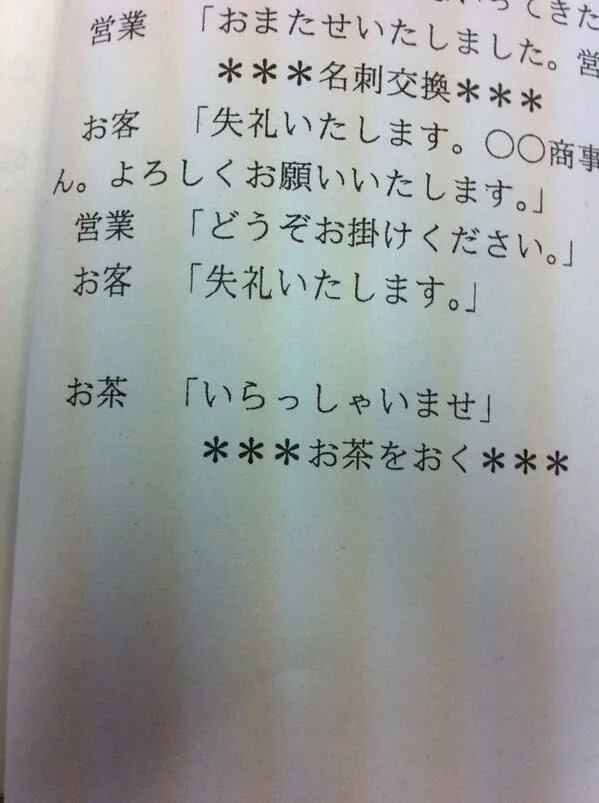 ってきた
営業 「おまたせいたしました。営
＊＊＊名刺交換＊＊＊
お客 「失礼いたします。○○商事
ん。よろしくお願いいたします。」
営業 「どうぞお掛けください。」
お客 「失礼いたします。」
お茶 「いらっしゃいませ」
＊＊＊お茶をおく＊＊＊